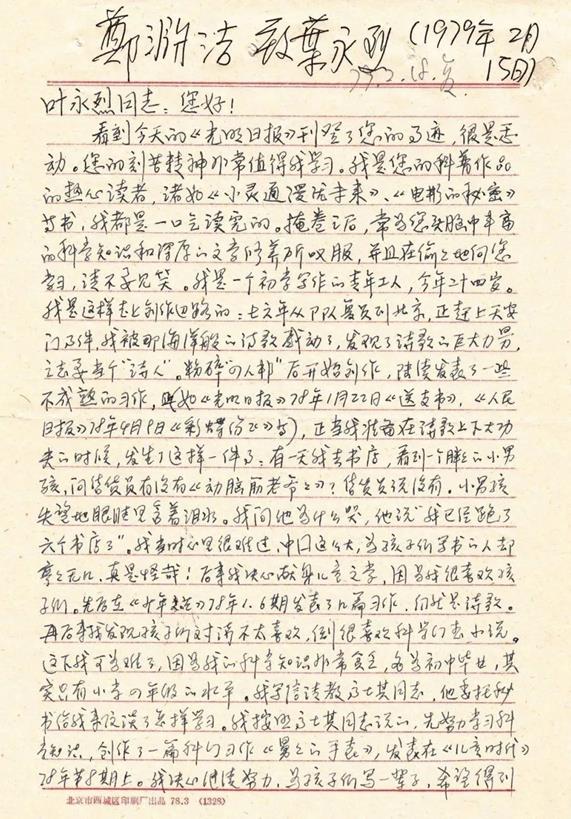 鄭渊洁 致葉永烈(1979年2月
15日)
叶永烈同志:您好!
看到今天的《光明日报》刊登了您的事迹,很是感
动。您的刻苦精神非常值得我学习。我是您的科普作品
的热心读者,诸如《小灵通漫游未来》、《电影的秘密》
等书,我都是一口气读完的。掩卷之后,常为您头脑中丰富
的科学知识和深厚的文学修养所叹服,并且在偷偷地向您
学习,请不要见笑。我是一个初学写作的青年工人,今年二十四岁。
我是这样走上创作道路的:七六年从部队复员到北京,正赶上天安
门事件,我被那海洋般的诗歌感动了,发现了诗歌的巨大力量,
立志要当个"诗人"。粉碎"四人邦"后开始创作,陆续发表了一些
不成熟的习作,(如《光明日报》78年1月22日《送支书》,《人民
日报》78年9月9日《彩蝶纷飞》等),正当我准备在诗歌上下大功
夫的时候,发生了这样一件事:有一天我去书店,看到一个胖胖的小男
孩,问售货员有没有《动脑筋爷爷》?售货员说没有。小男孩
失望地眼睛里含着泪水。我问他为什么哭,他说"我已经跑了
六个书店了"。我当时心里很难过,中国这么大,为孩子们写书的人却
寥寥无几,真是怪哉!后来我决心献身儿童文学,因为我很喜欢孩
子们。先后在《少年文艺》78年1.6期发表了几篇习作,仍然是诗歌。
再后来我发现孩子们对诗不太喜欢,但很喜欢科学幻想小说。
这下我可为难了,因为我的科学知识非常贫乏,名为初中毕业,其
实只有小学四年级的水平。我写信请教高士其同志,他委托秘
书给我来信谈了怎样学习。我按照高士其同志说的,先努力学习科
学知识,创作了一篇科幻习作《黑黑的手表》,发表在《儿童时代》
78年第8期上。我决心继续努力,为孩子们写一辈子,希望得到
北京市西城区印刷厂出品 78.3 (1328)